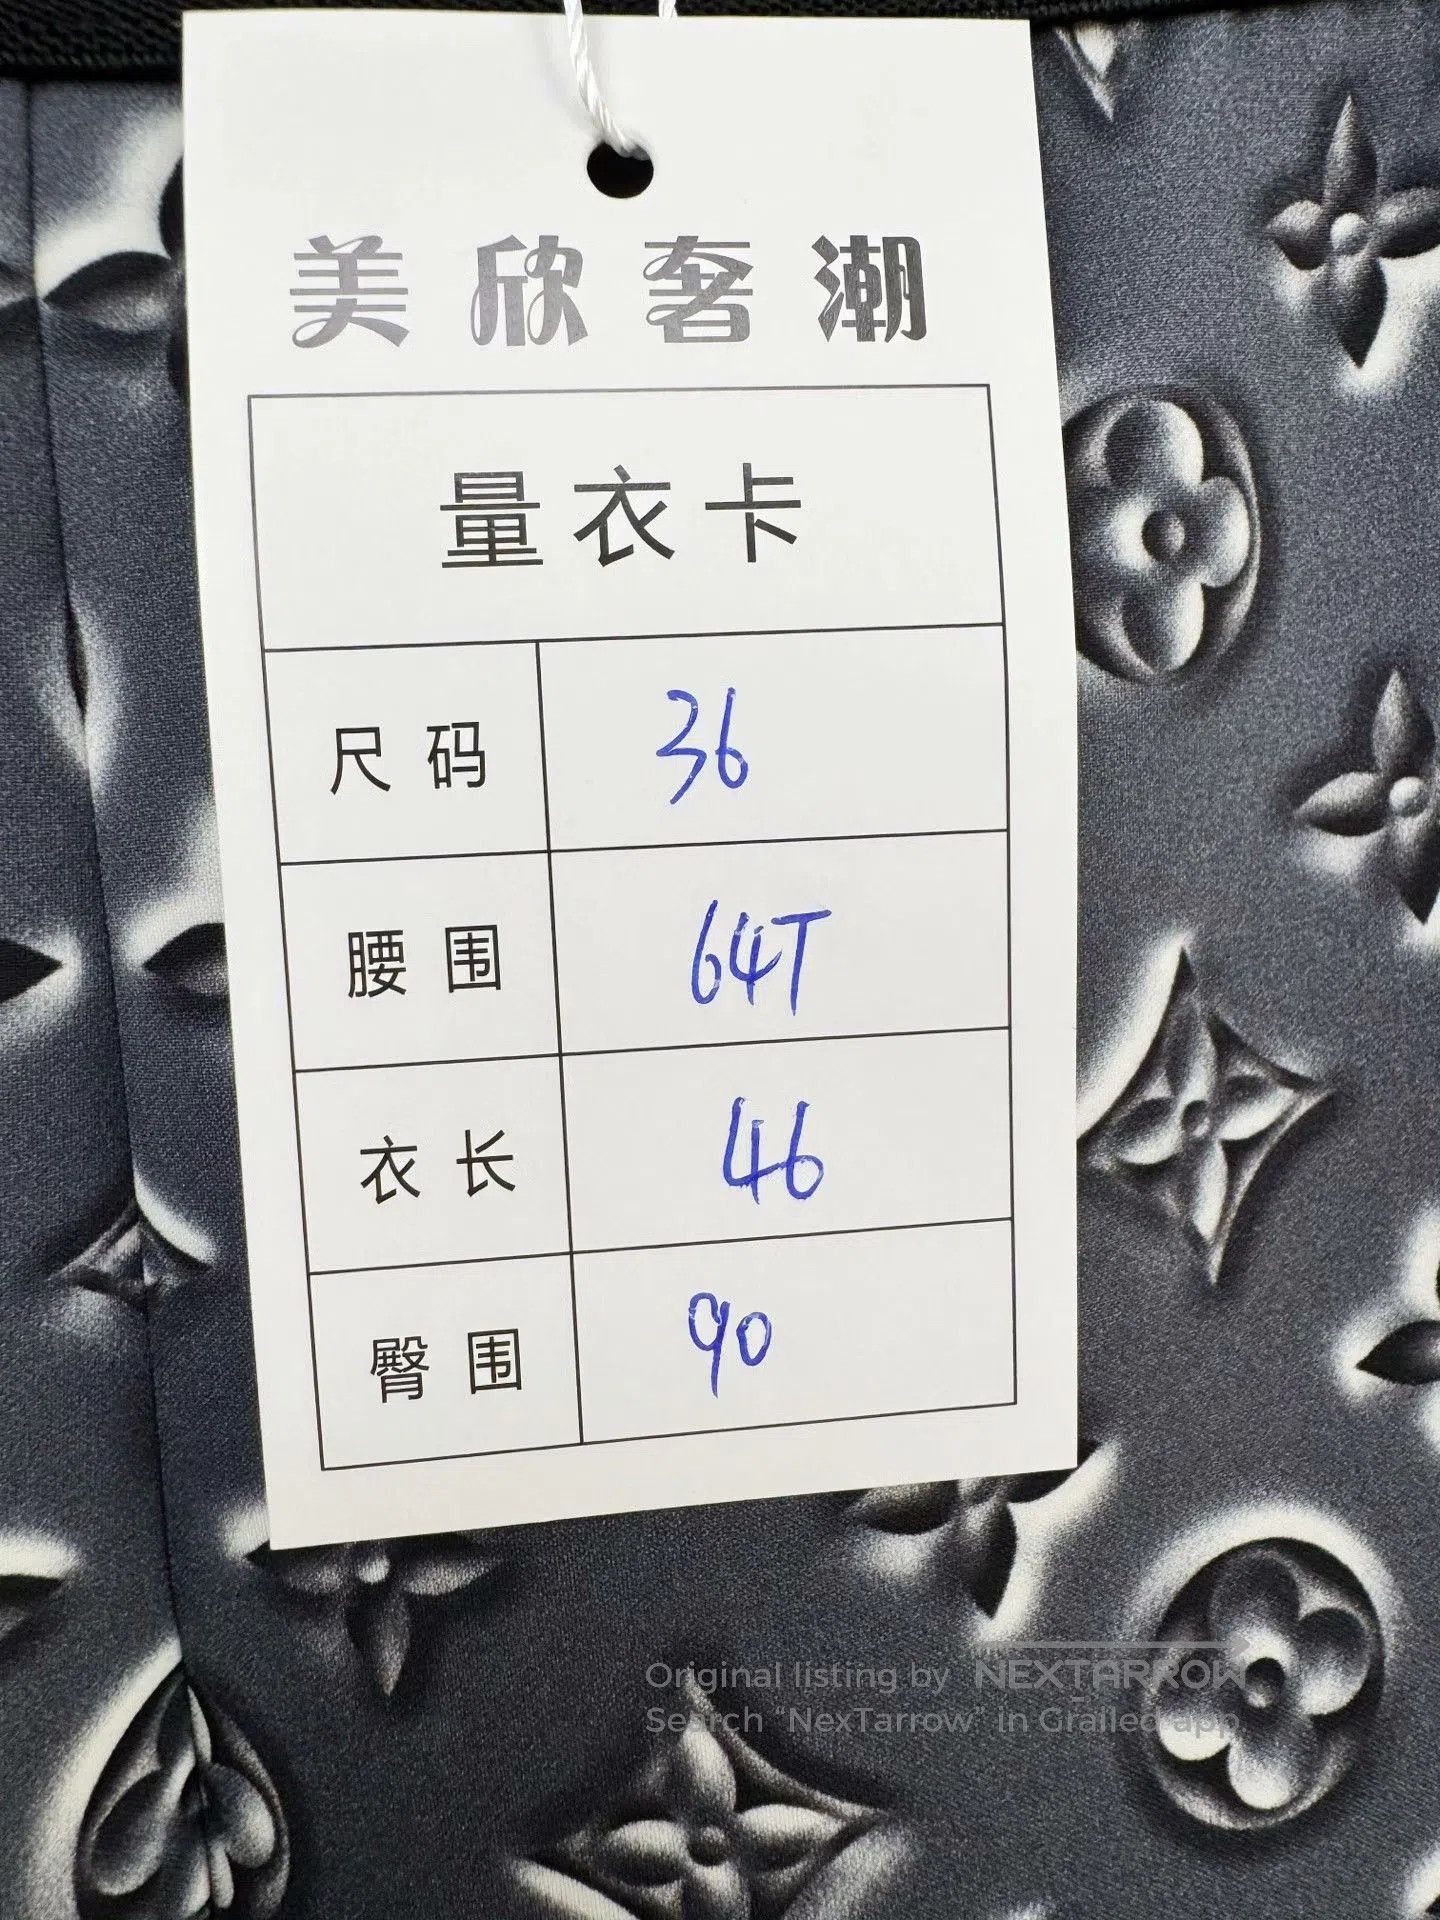 美欣奢潮
量衣卡
尺码 36
腰围 64T
衣长 46
臀围 90
Original listing by NEXTARROW
Search “NexTarrow” in Grailed app